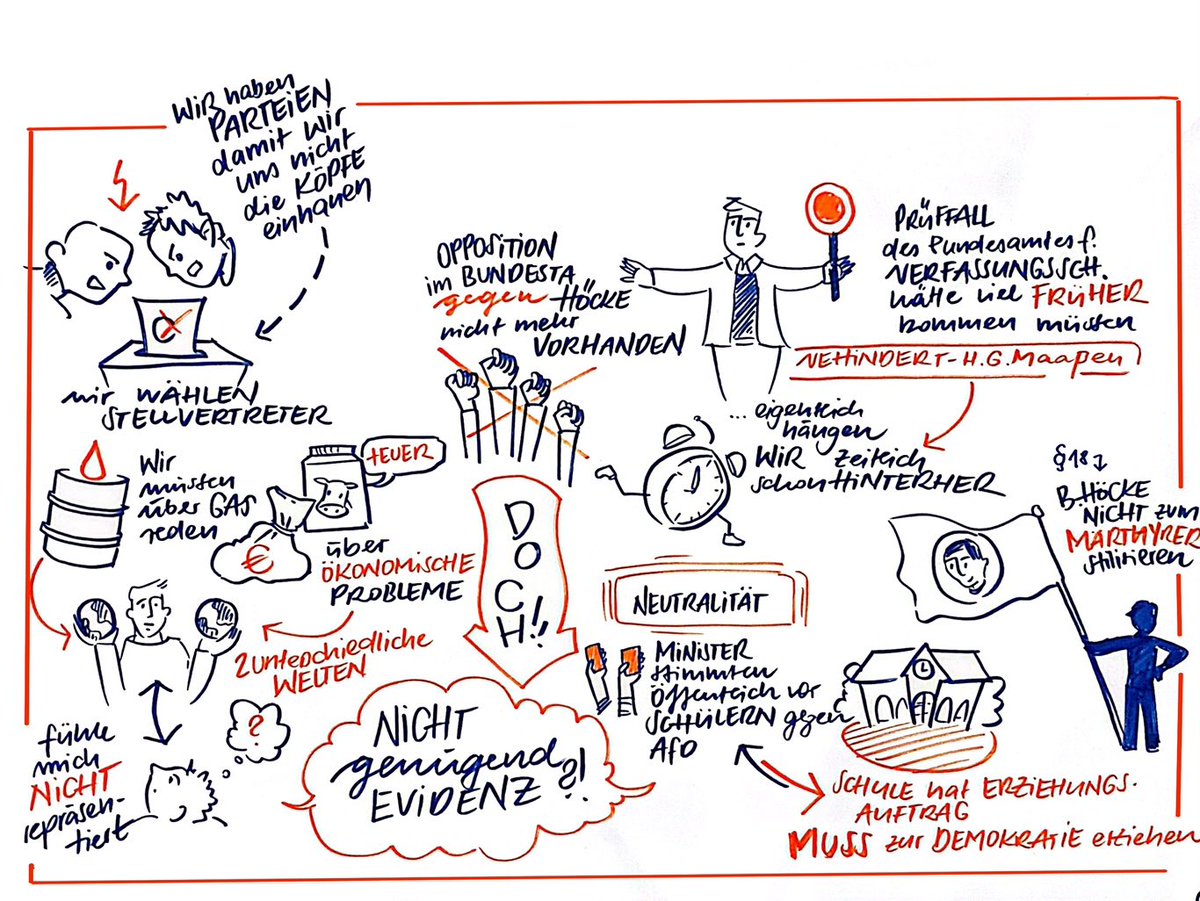 WiR haben
PARTEiEN
damit wir
uns nicht
die KÖPFE
einhauen
wir WÄHLEN
STELLVERTRETER
OPPOSITION
im BUNDESTA
gegen HÖCKE
nicht mehr
VORHANDEN
PRÜFFALL
des Bundesamtes f.
VERFASSUNGSSCH.
hätte viel FRÜHER
kommen müssen
H.G. Maaßen
... eigentlich
hängen
WiR zeitlich
schon HiNTERHER
§18
B. HÖCKE
NiCHT zum
MÄRTHYRER
stilisieren
Wir
müssen
über GAS
reden
TEUER
€
über
ÖKONOMiSCHE
PROBLEME
2 unterschiedliche
WELTEN
fühle
mich
NiCHT
repräsen-
tiert
?
DOCH!!
NiCHT
genügend
EViDENZ?!
NEUTRALiTÄT
MiNiSTER
stimmten
öffentlich vor
SCHÜLERN gegen
AfD
SCHULE hat ERZiEHUNGS-
AUFTRAG
MUSS zur DEMOKRATiE erziehen